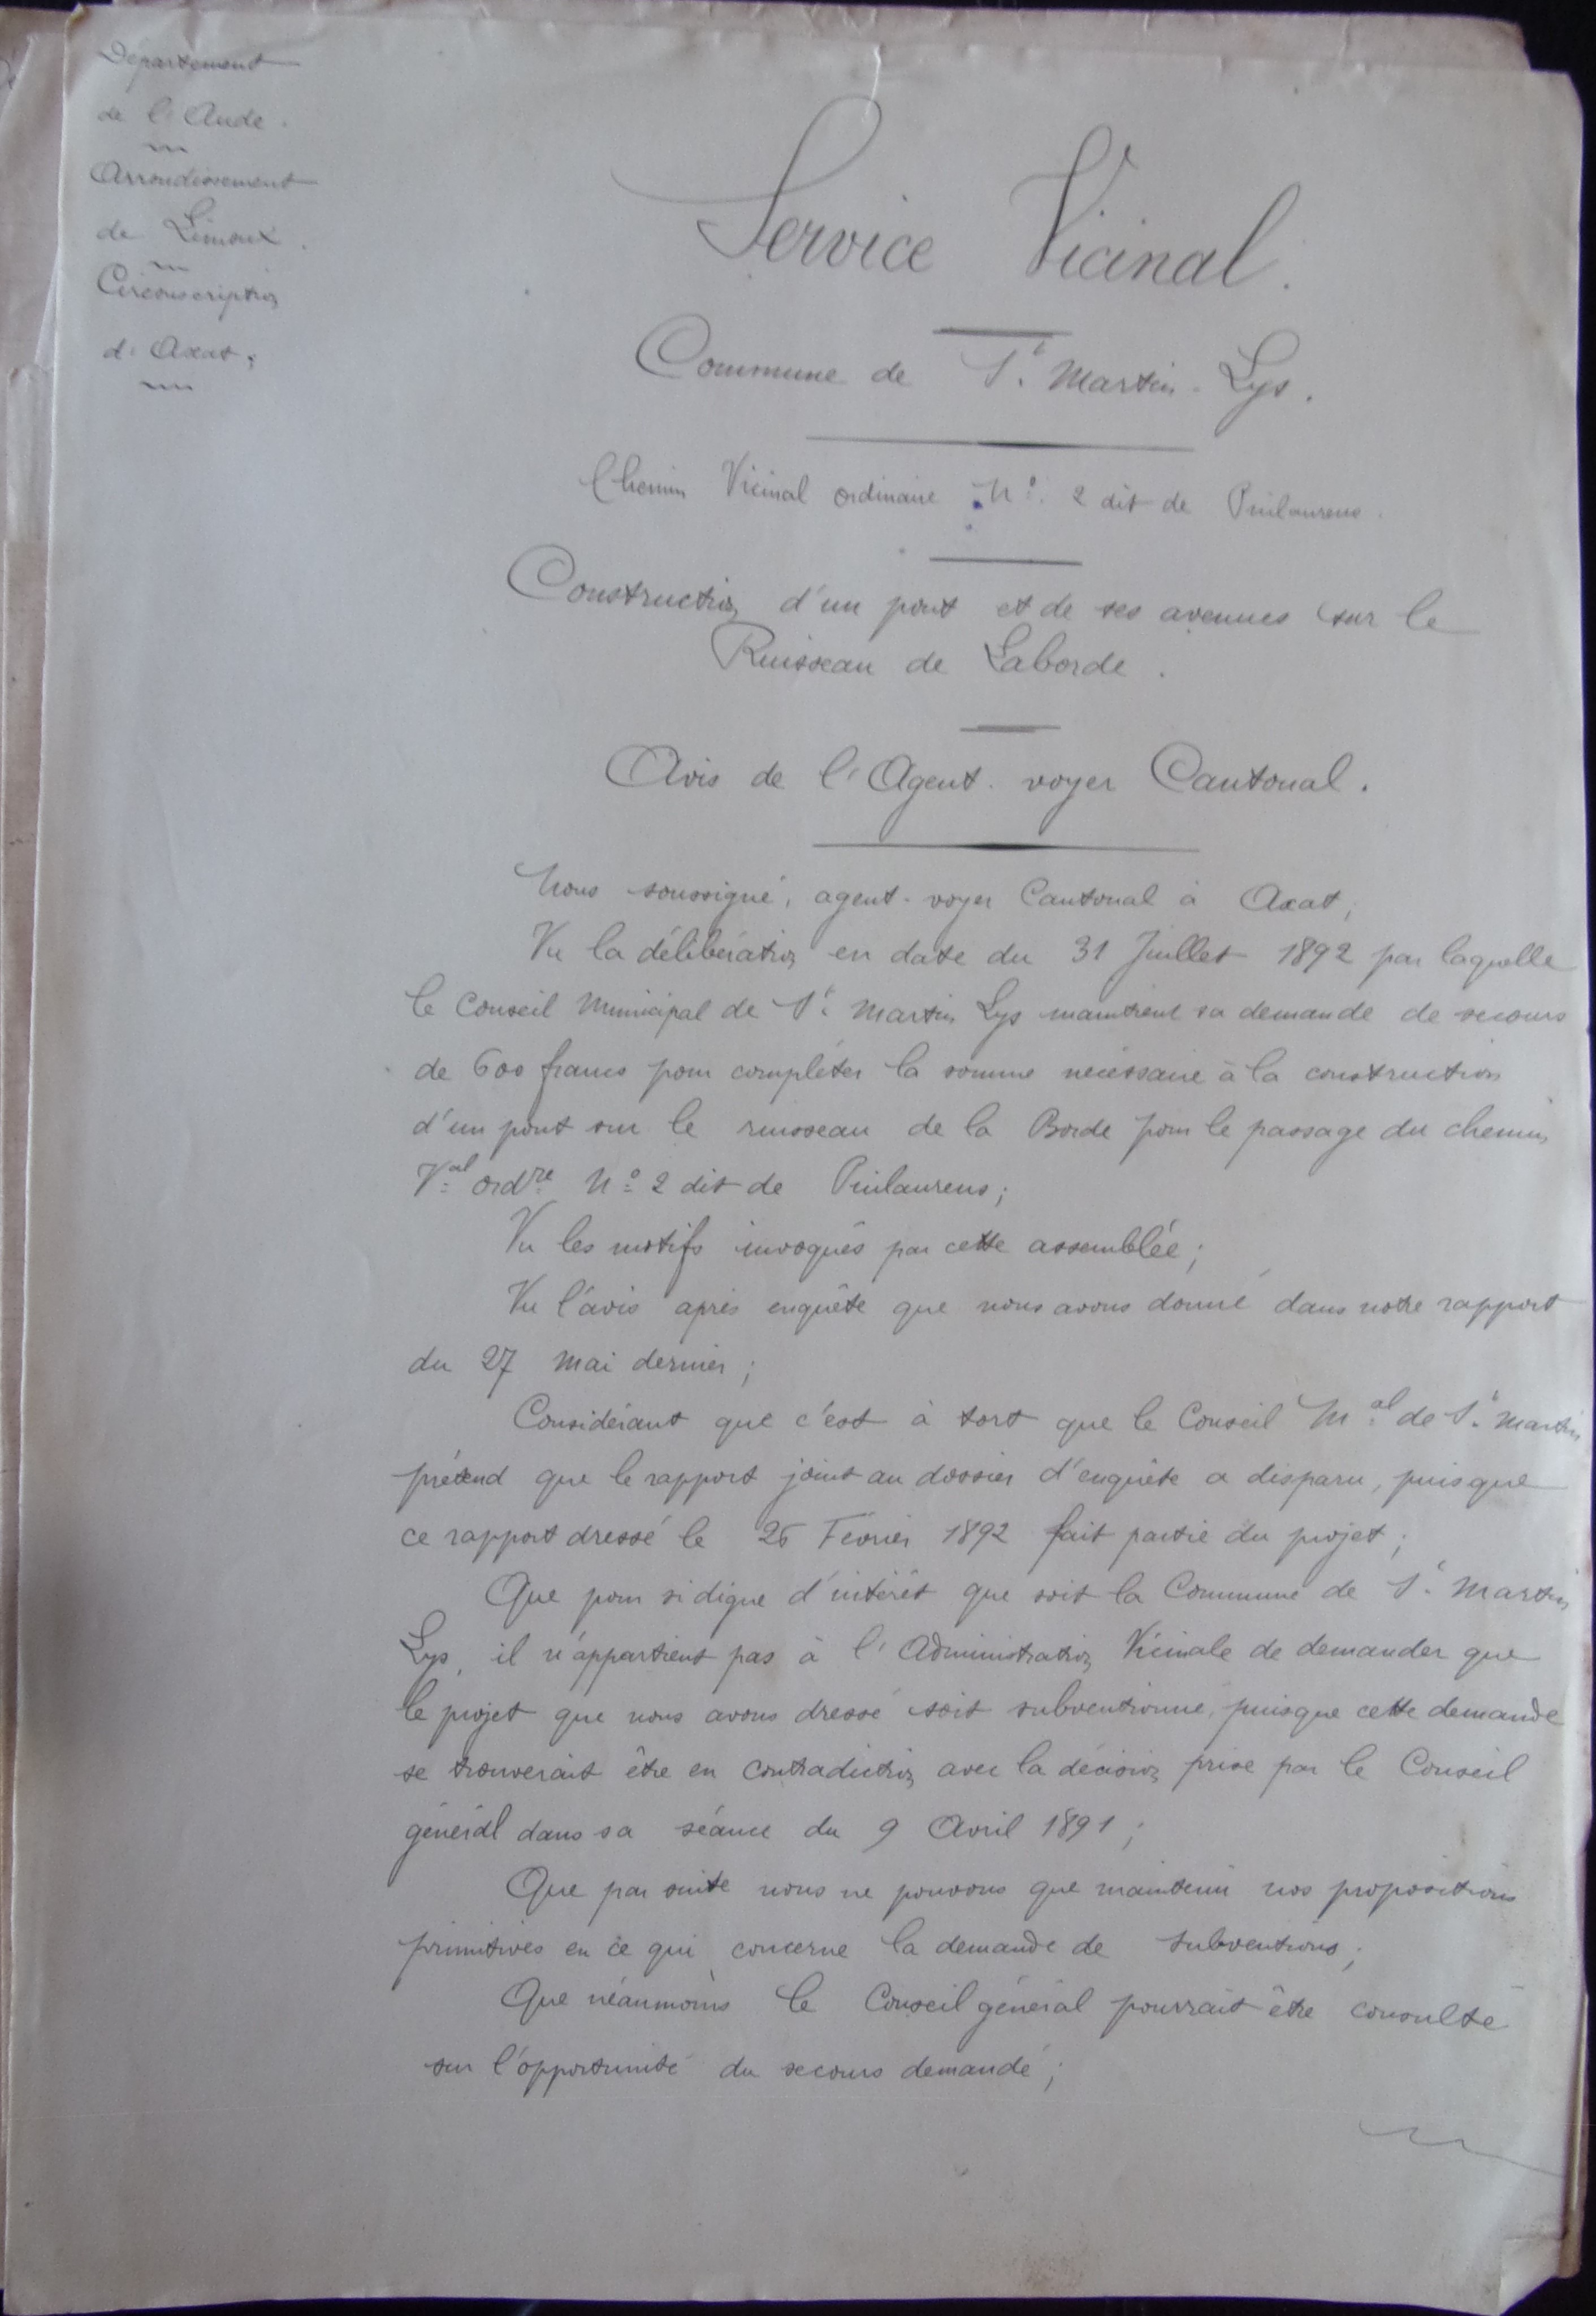 Département
de l'Aude.
Arrondissement
de Limoux.
Circonscription
d'Axat.
Service Vicinal.
Commune de St. Martin-Lys.
Chemin Vicinal ordinaire N°. 2 dit de Puilaurens.
Construction d'un pont et de ses avenues sur le
Ruisseau de Laborde.
Avis de l'Agent-voyer Cantonal.
Nous soussigné, agent-voyer Cantonal à Axat;
Vu la délibération en date du 31 Juillet 1892 par laquelle
le Conseil Municipal de St. Martin Lys maintient sa demande de secours
de 600 francs pour compléter la somme nécessaire à la construction
d'un pont sur le ruisseau de la Borde pour le passage du chemin
Val ordre N° 2 dit de Puilaurens;
Vu les motifs invoqués par cette assemblée;
Vu l'avis après enquête que nous avons donné dans notre rapport
du 27 Mai dernier;
Considérant que c'est à tort que le Conseil Mal de St. Martin
prétend que le rapport joint au dossier d'enquête a disparu, puisque
ce rapport dressé le Février 1892 fait partie du projet;
Que pour si digne d'intérêt que soit la Commune de St. Martin
Lys, il n'appartient pas à l'Administration Vicinale de demander que
le projet que nous avons dressé soit subventionné, puisque cette demande
se trouverait être en contradiction avec la décision prise par le Conseil
général dans sa séance du 9 Avril 1891;
Que par suite nous ne pouvons que maintenir nos propositions
primitives en ce qui concerne la demande de subventions;
Que néanmoins le Conseil général pourrait être consulté
sur l'opportunité du secours demandé;